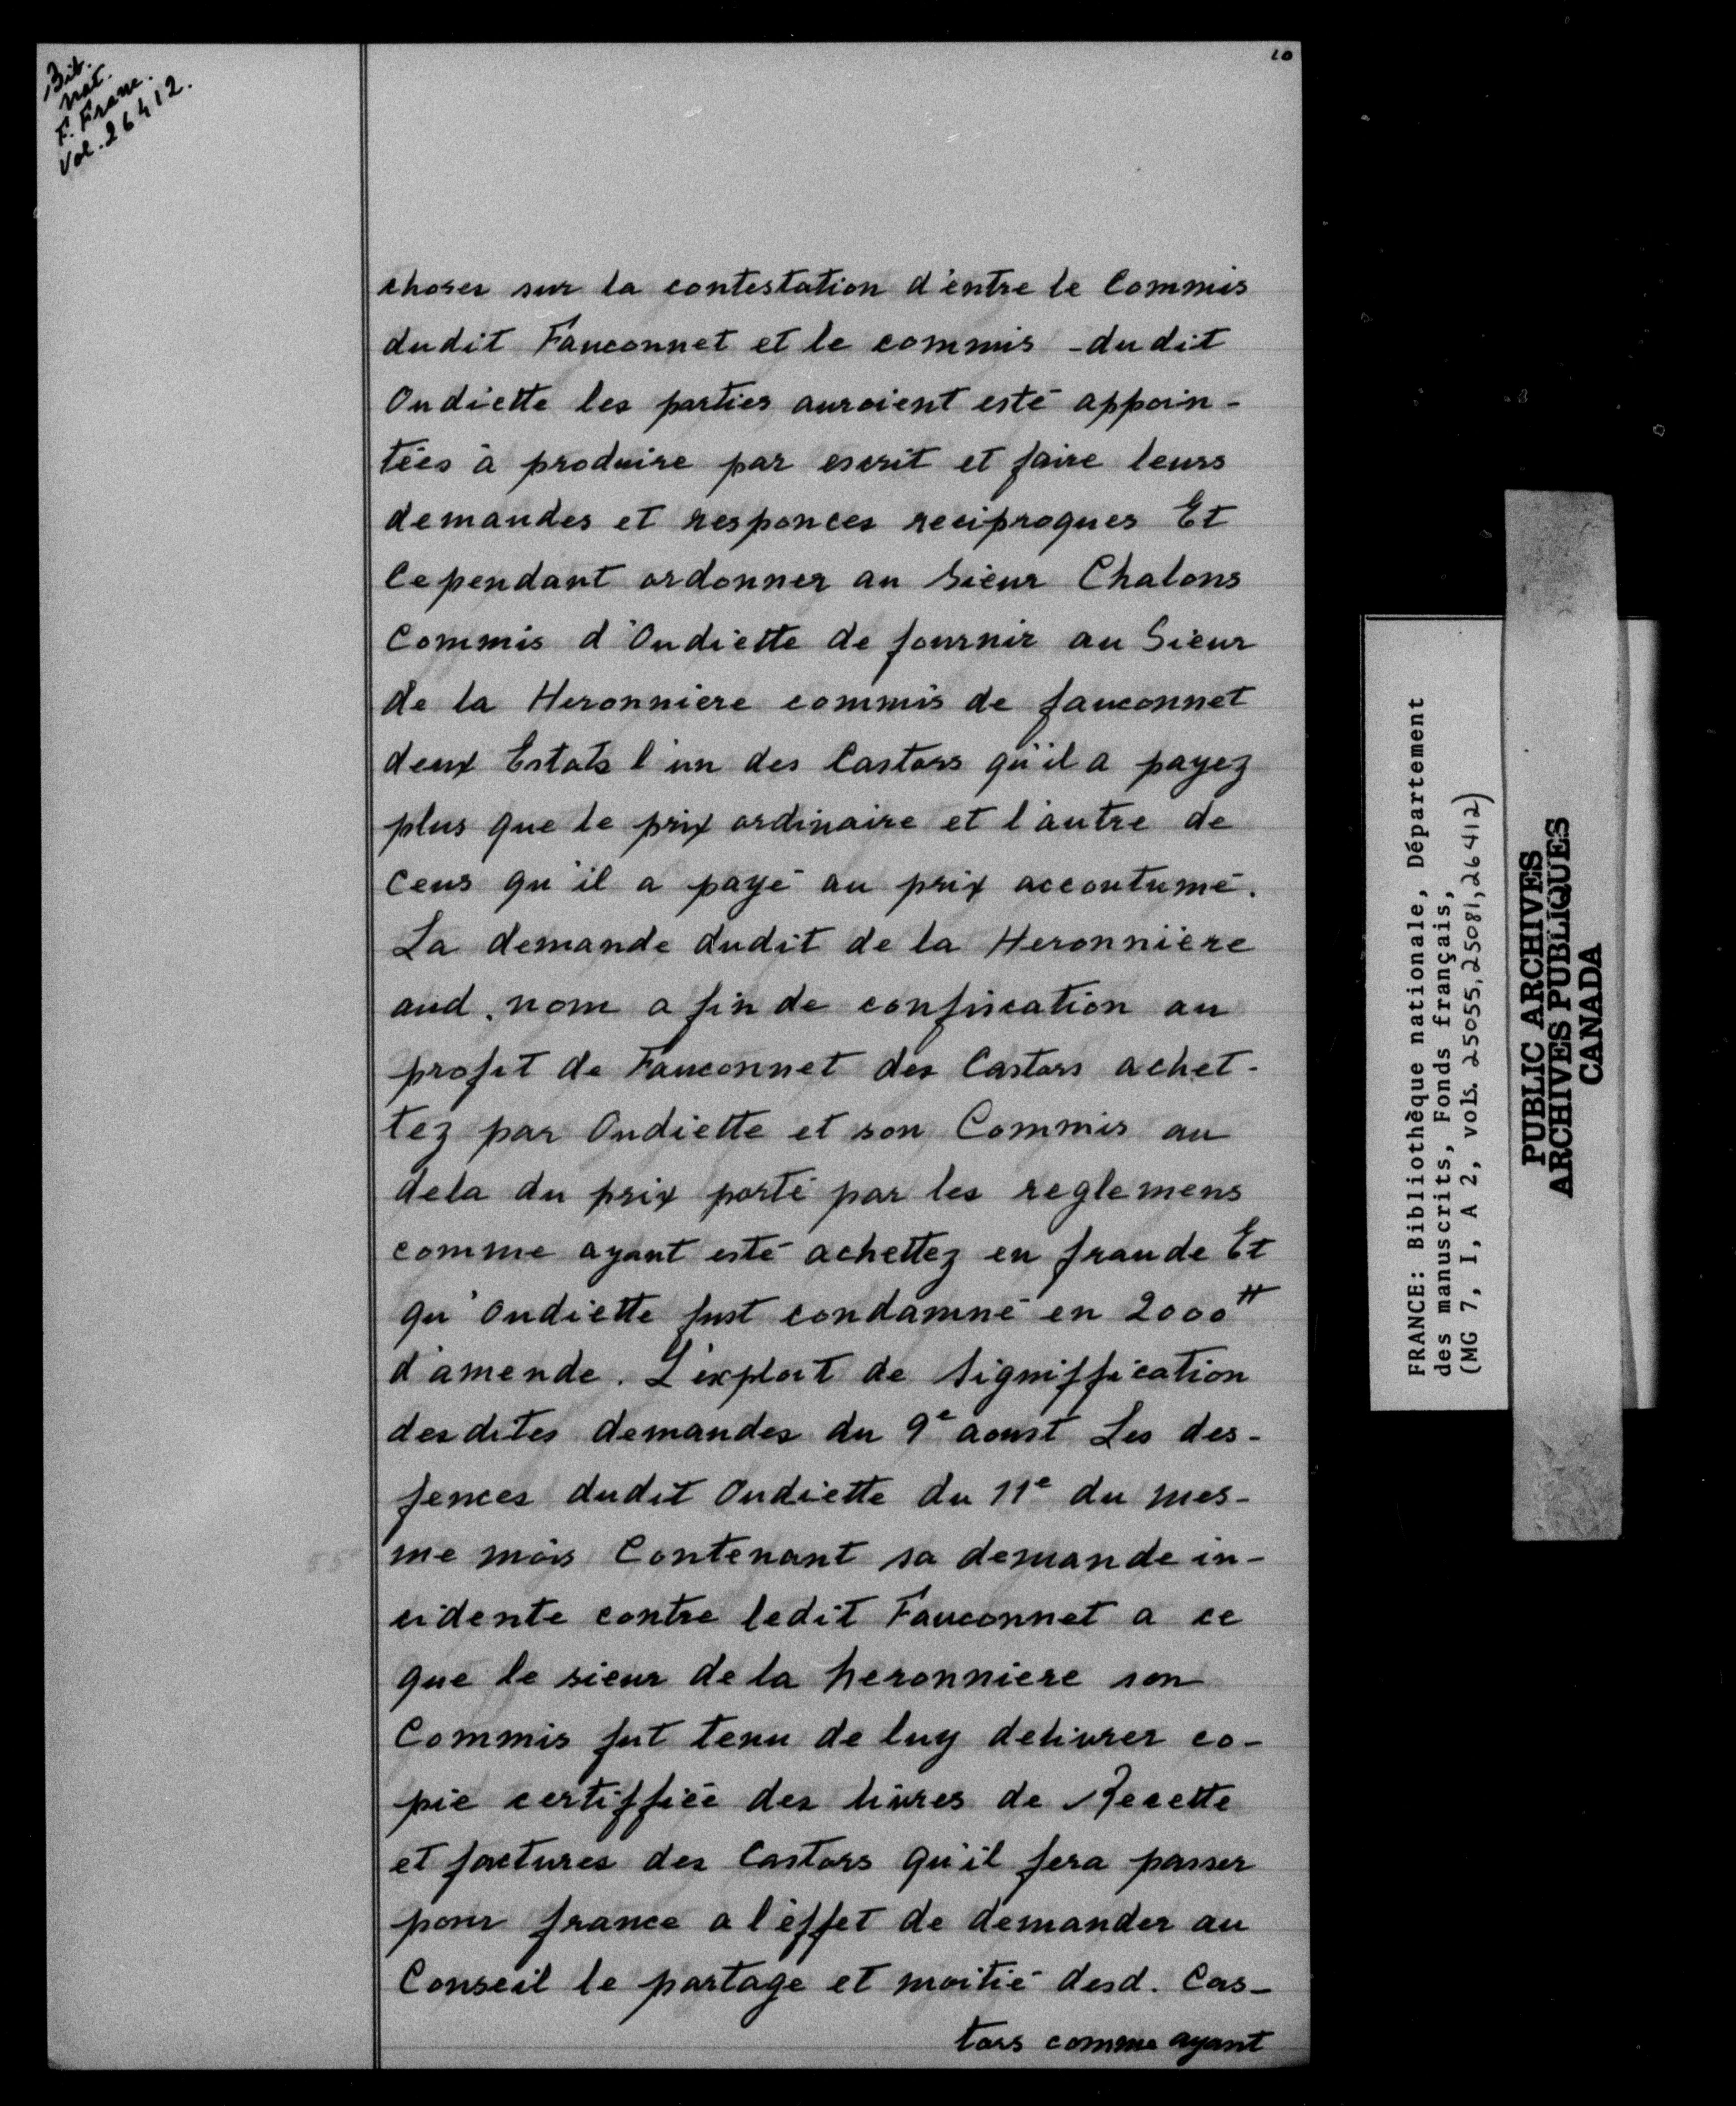 Bib.
nat.
F. Franc.
Vol. 26412.
10
choses sur la contestation d'entre le Commis
dudit Fauconnet et le commis - dudit
Oudiette les parties auroient esté appoin-
tées à produire par escrit et faire leurs
demandes et responces reciproques Et
Cependant ordonner au Sieur Chalons
Commis d'Oudiette de fournir au Sieur
de la Heronniere commis de fauconnet
deux Estats l'un des Castors qu'il a payez
plus que le prix ordinaire et l'autre de
Ceus qu'il a payé au prix accoutumé.
La demande dudit de la Heronniere
aud. nom a fin de confiscation au
profit de Fauconnet des Castors achet-
tez par Oudiette et son Commis au
dela du prix porté par les reglemens
comme ayant esté achettez en fraude Et
qu'Oudiette fust condamné en 2000 ₶
d'amende. L'exploit de Signiffication
desdites demandes du 9e aoust Les des-
fences dudit Oudiette du 11e du mes-
me mois Contenant sa demande in-
cidente contre ledit Fauconnet a ce
que le sieur de la heronniere son
Commis fut tenu de luy delivrer co-
pie certiffiée des livres de Recette
et factures des Castors qu'il fera passer
pour france a l'éffet de demander au
Conseil le partage et moitié desd. Cas-
tors comme ayant
FRANCE: Bibliothèque nationale, Département
des manuscrits, Fonds français,
(MG 7, I, A 2, vols. 25055, 25081, 26412)
PUBLIC ARCHIVES
ARCHIVES PUBLIQUES
CANADA